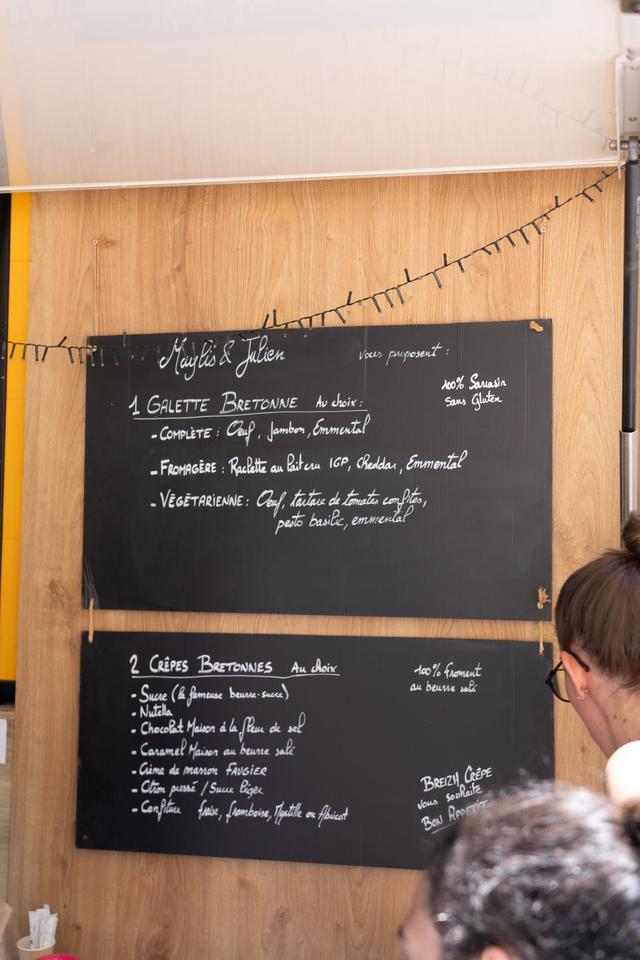 Maylis & Julien vous proposent :
100% Sarrasin
Sans Gluten
1 GALETTE BRETONNE Au choix :
- COMPLÈTE : Oeuf, Jambon, Emmental
- FROMAGÈRE : Raclette au lait cru IGP, Cheddar, Emmental
- VÉGÉTARIENNE : Oeuf, tartare de tomates confites,
pesto basilic, emmental
2 CRÊPES BRETONNES Au choix
100% Froment
au beurre salé
- Sucre (la fameuse beurre-sucre)
- Nutella
- Chocolat Maison à la fleur de sel
- Caramel Maison au beurre salé
- Crème de marron FAUGIER
- Citron pressé / Sucre léger
- Confiture fraise, framboise, Myrtille ou Abricot
BREIZH CRÊPE
vous souhaite
BON APPÉTIT